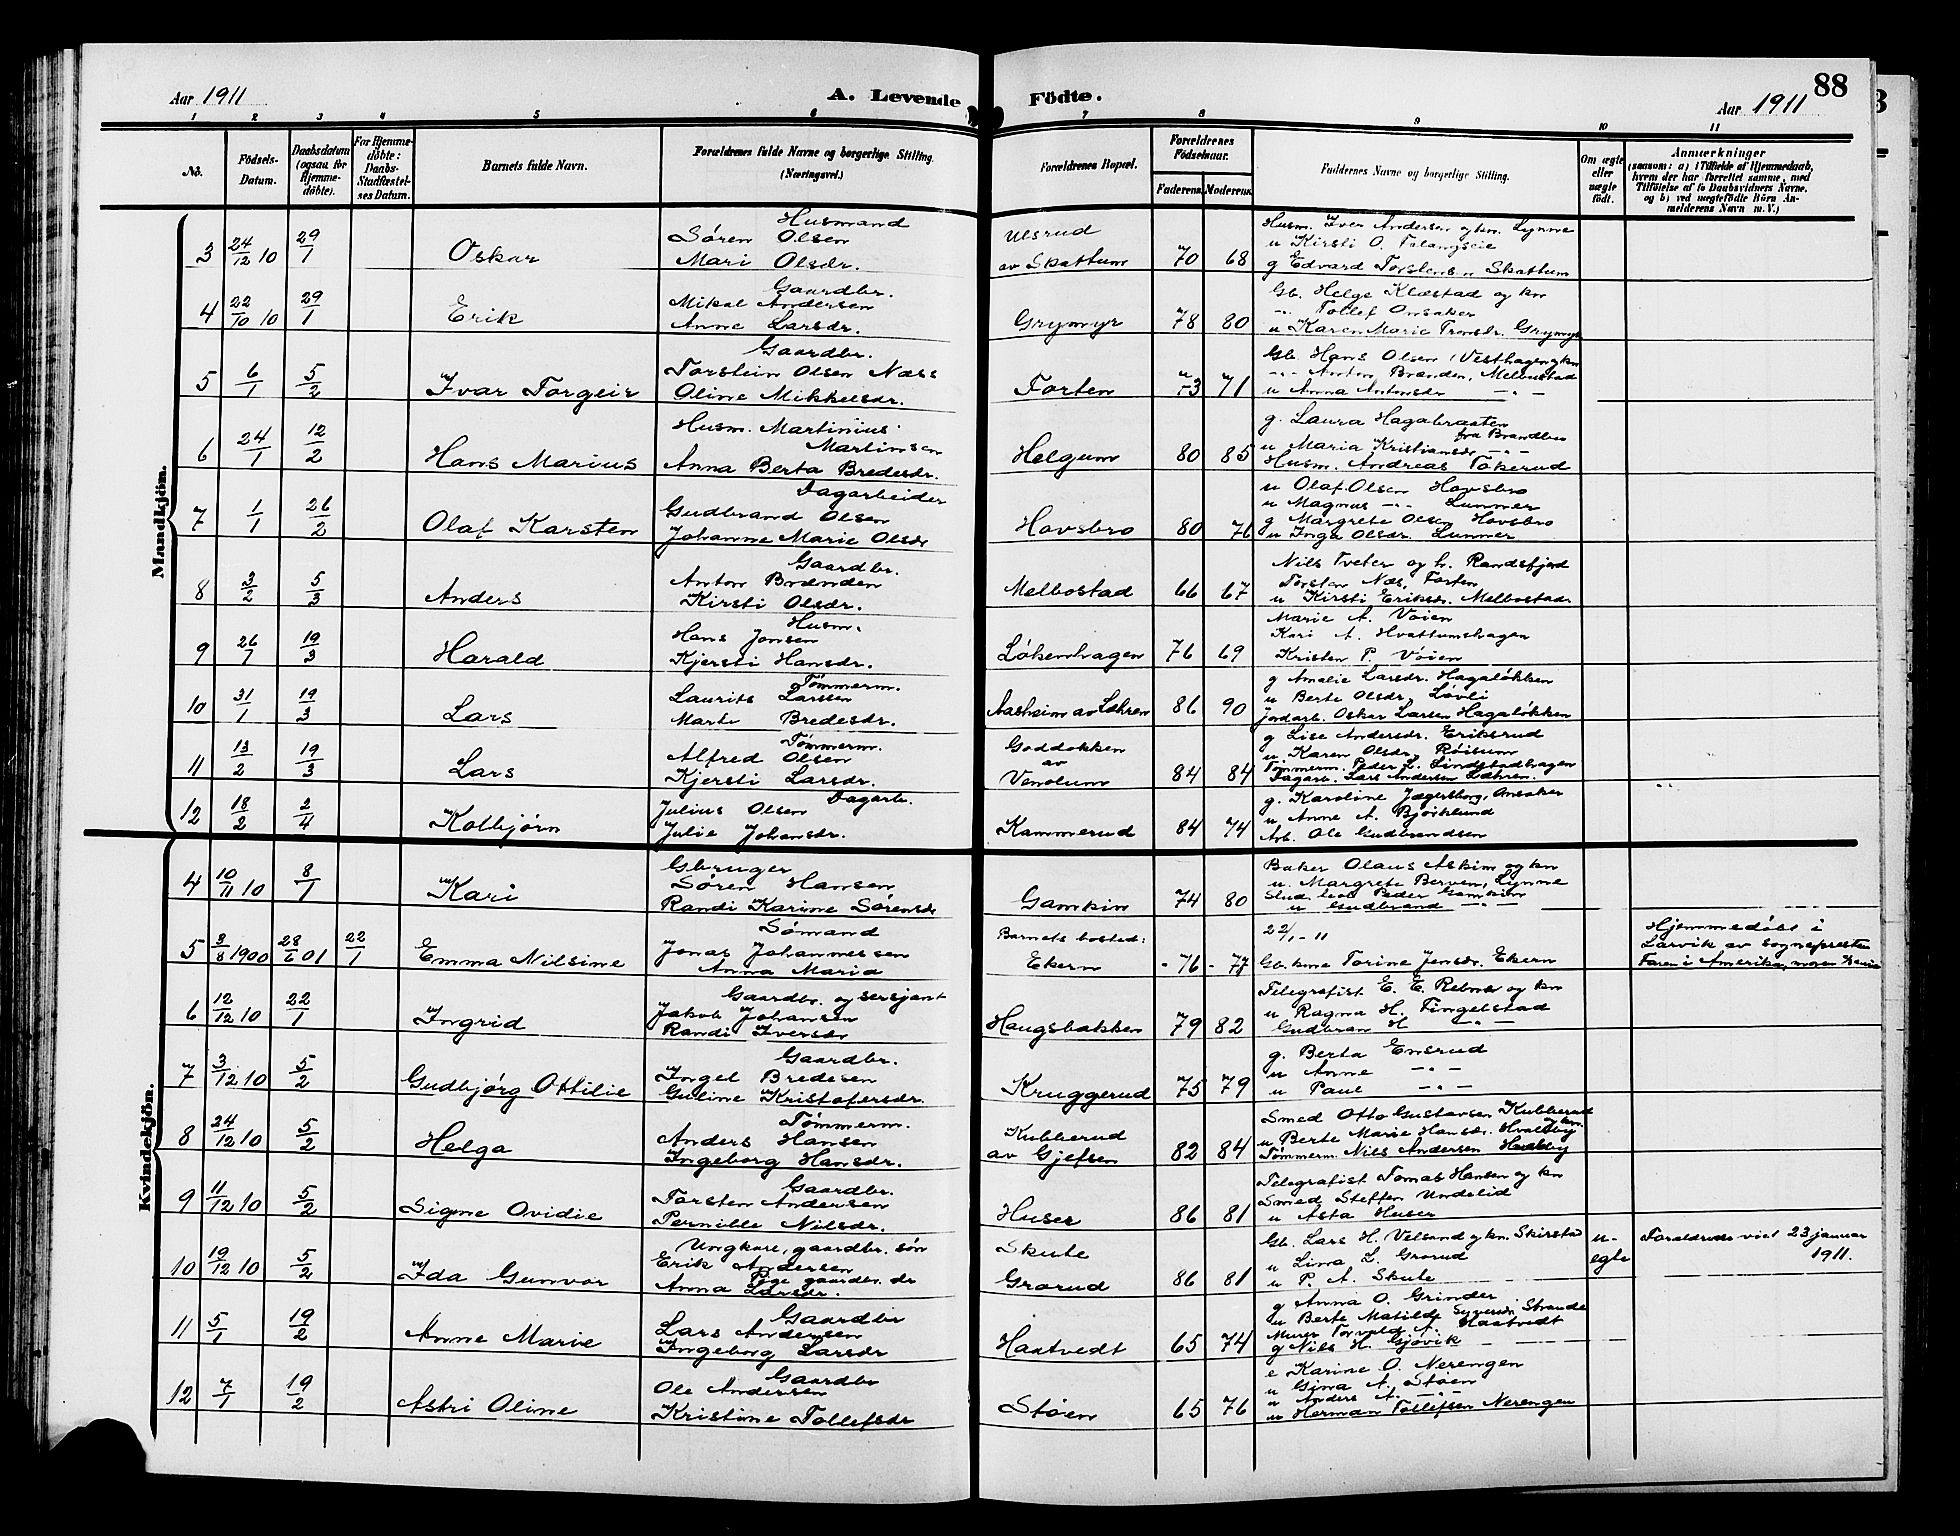 88
Aar 1911
A. Levende Födte.
Aar 1911
1 2 3 4 5 6 7 8 9 10 11
No.
Födsels-Datum.
Daabsdatum (ogsaa for Hjemmedöbte).
For Hjemmedöbte: Daabs-Stadfæstelses Datum.
Barnets fulde Navn.
Forældrenes fulde Navne og borgerlige Stilling. (Næringsvei.)
Forældrenes Bopæl.
Forældrenes Födselsaar.
Faderens. Moderens.
Faddernes Navne og borgerlige Stilling.
Om ægte eller uægte födt.
Anmærkninger
(saasom: a) i Tilfælde af Hjemmedaab, hvem der har forrettet samme, med Tilföielse af to Daabsvidners Navne, og b) ved uægtefödte Börn Anmelderens Navn m. V.)
Mandkjön.
3 24/12 10 29/1 Oskar
Husmand
Søren Olsen
Mari Olsdr.
Ulsrud
av Skattum 70 68
Husm. Iver Andersen og kn. Lynne
u Kirsti O. Falangseie
g Edvard Torstensen Skattum
4 22/10 10 29/1 Erik
Gaardbr.
Mikal Andersen
Anne Larsdr.
Grymyr 78 80
Gb. Helge Klæstad og kn
-"- Tollef Onsaker
u Karen Marie Tronsdr. Grymyr
5 6/1 5/2 Ivar Torgeir
Gaardbr.
Torstein Olsen Næss
Oline Mikkelsdr.
Forten 73 71
Gb. Hans Olsen Vesthagen og kn
-"- Anton Brænden, Melbostad
u Anna Antonsdr -"-
6 24/1 12/2 Hans Marius
Husm. Martinius
Martinsen
Anna Berta Bredesdr.
Helgum 80 85
g. Laura Hagabraaten
fra Brandbu
u Maria Kristiansdr -"-
Husm. Andreas Tokerud
7 1/1 26/2 Olaf Karsten
Dagarbeider
Gudbrand Olsen
Johanne Marie Olsdr
Hovsbro 80 76
u Olaf Olsen Hovsbro
u Magnus -"- Lunner
g Margrete Olsen Hovsbro
u Inga Olsdr. Lunner
8 3/2 5/3 Anders
Gaardbr.
Anton Brænden
Kirsti Olsdr.
Melbostad 66 67
Nils Tveter og h. Randsfjord
Torsten Næs, Forten
u Kirsti Eriksdr. Melbostad
9 26/7 19/3 Harald
Husm.
Hans Jonsen
Kjersti Hansdr.
Løkenhagen 76 69
Marie A. Vøien
Kari A. Hvattumshagen
Kristen P. Vøien
10 31/1 19/3 Lars
Tømmerm.
Laurits Larsen
Marte Bredesdr.
Aasheim av Læhren 86 90
g Amalie Larsdr. Hagaløkken
u Berte Olsdr. Løvli
Jordarb. Oskar Larsen Hagaløkken
11 13/2 19/3 Lars
Tømmerm.
Alfred Olsen
Kjersti Larsdr.
Goddokken
av
Venolum 84 84
g Lise Andersdr. Eriksrud
u Karen Olsdr. Røisum
Tømmerm. Peder L. Lindstadhagen
Dagarb. Lars Andersen Læhren.
12 18/2 2/4 Kolbjørn
Dagarb.
Julius Olsen
Julie Johansdr.
Kammerud 84 74
g. Karoline Jægersborg, Onsaker
u Anne A. Bjørklund
Arb. Ole Gudbrandsen
Kvindekjön.
4 10/11 10 8/1 Kari
Gbruger
Søren Hansen
Randi Karine Sørensdr
Gamkin 74 80
Baker Olaus Askim og kn
u. Margrete Berven, Lynne
Stud. Peder Gamkin
u Gudbrand -"-
5 3/8 1900 28/6 01 22/1 Emma Nilsine
Sømand
Jonas Johannessen
Anna Maria
Barnets bosted:
Ekern - 76 - 77
22/1 - 11
Gb.kone Torine Jensdr. Ekern
Hjemmedøbt i
Larvik av sognepresten
Faren i Amerika, moren
6 12/12 10 22/1 Ingrid
Gaardbr. og sersjant
Jakob Johansen
Randi Iversdr
Haugsbakken 79 82
Telegrafist E. E. Rebne og kn
u Ragna H. Tingelstad
Gudbran H -"-
7 3/12 10 5/2 Gudbjørg Ottilie
Gaardbr.
Ingel Bredesen
Guline Kristofersdr.
Kruggerud 75 79
g. Berta Ensrud
u Anne -"-
u Paul -"-
8 24/12 10 5/2 Helga
Tømmerm.
Anders Hansen
Ingeborg Hansdr.
Kubberud
av Gjefsen 82 84
Smed Otto Gustavsen Kubberud
og kn.
u Berte Marie Hansdr. Hvalsby
Tømmerm. Nils Andersen Hvalsby
9 11/12 10 5/2 Signe Ovidie
Gaardbr.
Torsten Andersen
Pernille Nilsdr.
Huser 86 81
Telegrafist Tomas Hansen og kn
Smed Steffen Undelid
u Asta Huser
10 19/12 10 5/2 Ida Gunvor
Ungkare, gaardbr. søn
Erik Andersen
Pige gaardbr. dr
Anna Larsdr.
Skute
Grorud 86 81
Gb. Lars H. Velsand og kn. Skirstad
u Lina L. Grorud
u P. A. Skute
u-
egte
Foreldrede viet 23 januar
1911.
11 5/1 19/2 Anne Marie
Gaardbr
Lars Andersen
Ingeborg Larsdr
Haatvedt 65 74
g Anna O. Grinder
u Berte Matilde Syversdr. Strande
Murer Torvald A. Haatvedt
g Nils H. Gjøvik -
12 7/1 19/2 Astri Oline
Gaardbr
Ole Andersen
Kristine Tollefsdr
Støen 65 76
e Karine O. Nerengen
u Gina A. Støen
u Anders A. -"-
u Herman Tollefsen Nerengen